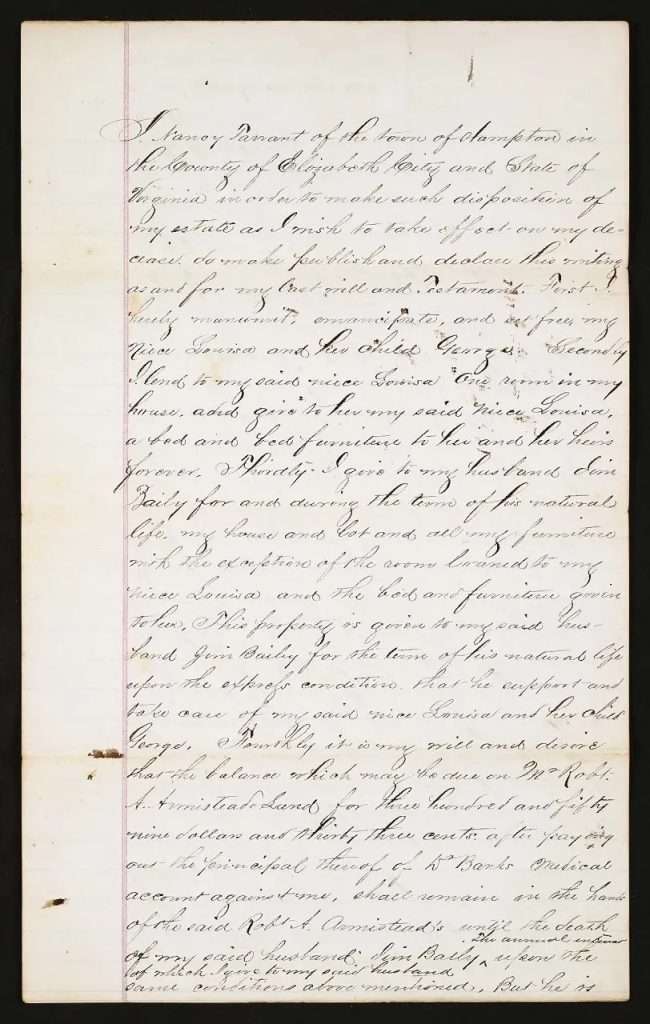 I Nancy Tarrant of the town of Hampton in
the County of Elizabeth City and State of
Virginia in order to make such disposition of
my estate as I wish to take effect on my de-
cease. do make publish and declare this writing
as and for my last will and Testament. First I
hereby manumit, emancipate, and set free, my
Niece Louisa and her child George. Secondly
I lend to my said niece Louisa One room in my
house, and give to her my said niece Louisa,
a bed and bed furniture to her and her heirs
forever. Thirdly. I give to my husband Jim
Baily for and during the term of his natural
life. my house and lot and all my furniture
with the exception of the room loaned to my
niece Louisa and the bed and furniture given
to her. This property is given to my said hus-
band Jim Baily for the term of his natural life
upon the express condition that he support and
take care of my said niece Louisa and her child
George. Fourthly it is my will and desire
that the balance which may be due on Mr Robt.
A. Armisteads Land for three hundred and fifty
nine dollars and thirty three cents. after paying
out the principal thereof of Dr Banks Medical
account against me, shall remain in the hands
of the said Robt A. Armistead's until the death
The annual interest
of my said husband Jim Baily ^ upon the
of which I give to my said husband
same conditions above mentioned. But he is